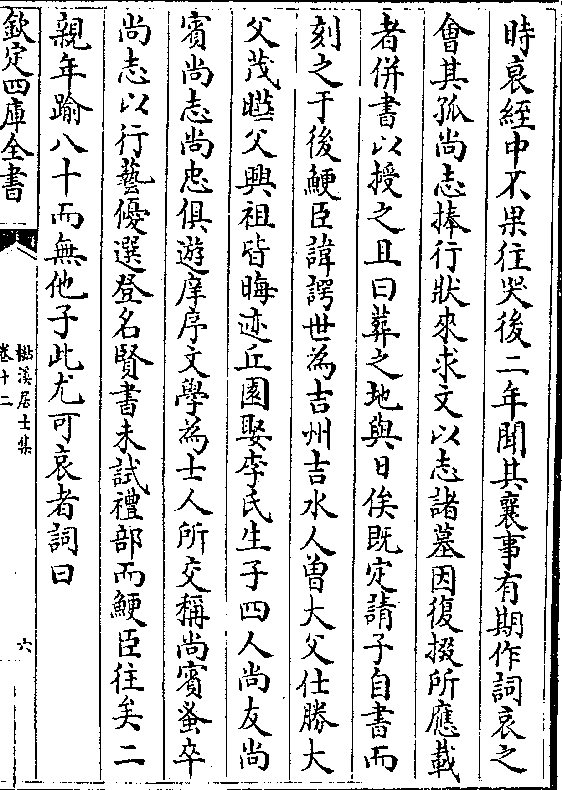 時衰絰中不果往哭後二年聞其襄事有期作詞哀之
會其孤尚志捧行狀來求文以志諸墓因復掇所應載
者併書以授之且曰葬之地與日俟既定請子自書而
刻之于後鯁臣諱諤世為吉州吉水人曽大父仕勝大
父茂㬢父興祖皆晦迹丘園娶李氏生子四人尚友尚
賓尚志尚忠俱遊庠序文學為士人所交稱尚賓蚤卒
尚志以行藝優選登名賢書未試禮部而鯁臣往矣二
親年踰八十而無他子此尤可哀者詞曰
欽定四庫全書
溪居士集
卷十二
六